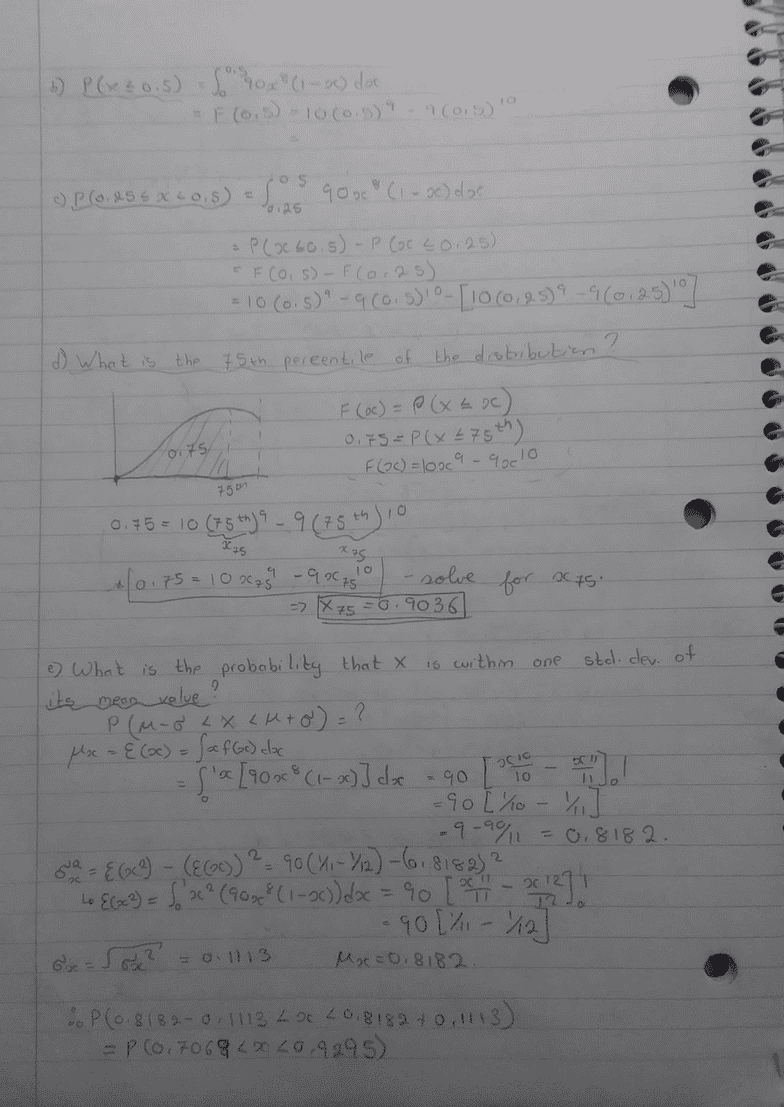 b) P(x ≤ 0.5) = ∫₀^0.5 90x⁸(1-x) dx
= F(0.5) = 10(0.5)⁹ - 9(0.5)¹⁰
=
c) P(0.25 ≤ x ≤ 0.5) = ∫₀.₂₅^0.5 90x⁸(1-x)dx
= P(x ≤ 0.5) - P(x ≤ 0.25)
= F(0.5) - F(0.25)
= 10(0.5)⁹ - 9(0.5)¹⁰ - [10(0.25)⁹ - 9(0.25)¹⁰]
d) What is the 75th percentile of the distribution?
F(x) = P(X ≤ x)
0.75 = P(X ≤ 75th)
F(x) = 10x⁹ - 9x¹⁰
0.75
75th
0.75 = 10(75th)⁹ - 9(75th)¹⁰
x₇₅ x₇₅
* 0.75 = 10x₇₅⁹ - 9x₇₅¹⁰ - solve for x₇₅.
=> x₇₅ = 0.9036
e) What is the probability that X is within one std. dev. of
its mean value?
P(μ-σ < X < μ+σ) = ?
μx = E(x) = ∫xf(x)dx
= ∫₀¹ x[90x⁸(1-x)]dx = 90 [x¹⁰/10 - x¹¹/11]₀¹
= 90 [1/10 - 1/11]
= 9 - 90/11 = 0.8182.
σx² = E(x²) - (E(x))² = 90(1/11 - 1/12) - (0.8182)²
↳ E(x²) = ∫₀¹ x²(90x⁸(1-x))dx = 90 [x¹¹/11 - x¹²/12]₀¹
= 90 [1/11 - 1/12]
σx = √σx² = 0.1113 μx = 0.8182.
∴ P(0.8182 - 0.1113 < x < 0.8182 + 0.1113)
= P(0.7069 < x < 0.9295)